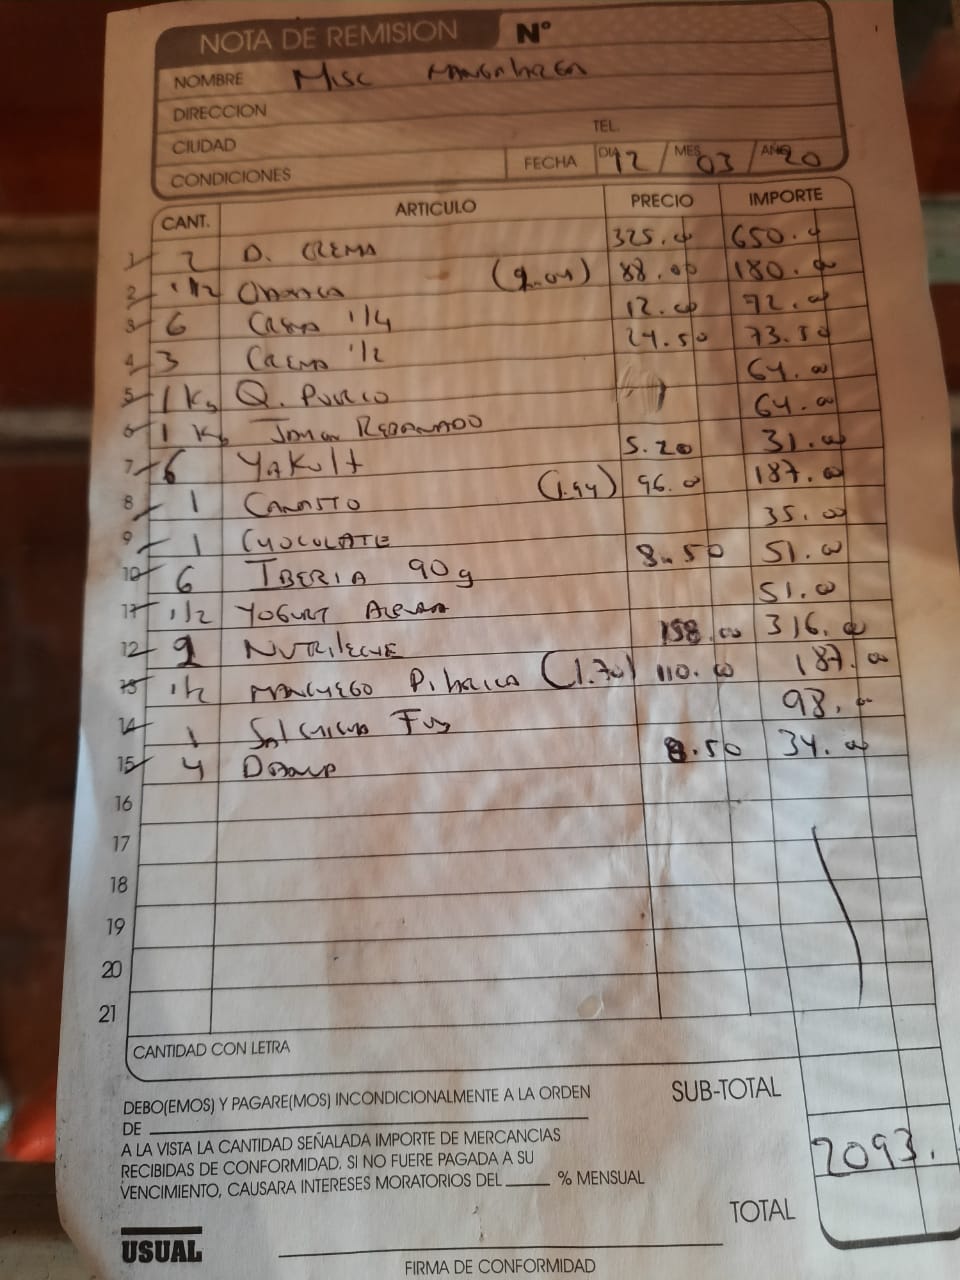 NOTA DE REMISION Nº
NOMBRE Misc
DIRECCION
CIUDAD TEL.
CONDICIONES FECHA DIA 12 MES 03 AÑO 20
CANT. ARTICULO PRECIO IMPORTE
1 2 D. CREMA 325.00 650.00
2 1/2 OAXACA (2.04) 88.00 180.00
3 6 CREMA 1/4 12.00 72.00
4 3 CREMA 1/2 24.50 73.50
5 1 Kg Q. PUERCO 64.00
6 1 Kg JAMON REBANADO 64.00
7 6 YAKULT 5.20 31.00
8 1 CANASTO (1.94) 96.00 187.00
9 1 CHOCOLATE 35.00
10 6 IBERIA 90g 8.50 51.00
11 1/2 YOGURT 51.00
12 2 NUTRILECHE 158.00 316.00
13 1/2 MANCHEGO (1.70) 110.00 187.00
14 1 SALCHICHA FUD 98.00
15 4 8.50 34.00
16
17
18
19
20
21
CANTIDAD CON LETRA
DEBO(EMOS) Y PAGARE(MOS) INCONDICIONALMENTE A LA ORDEN SUB-TOTAL
DE
A LA VISTA LA CANTIDAD SEÑALADA IMPORTE DE MERCANCIAS 2093.
RECIBIDAS DE CONFORMIDAD. SI NO FUERE PAGADA A SU
VENCIMIENTO, CAUSARA INTERESES MORATORIOS DEL % MENSUAL
TOTAL
USUAL
FIRMA DE CONFORMIDAD